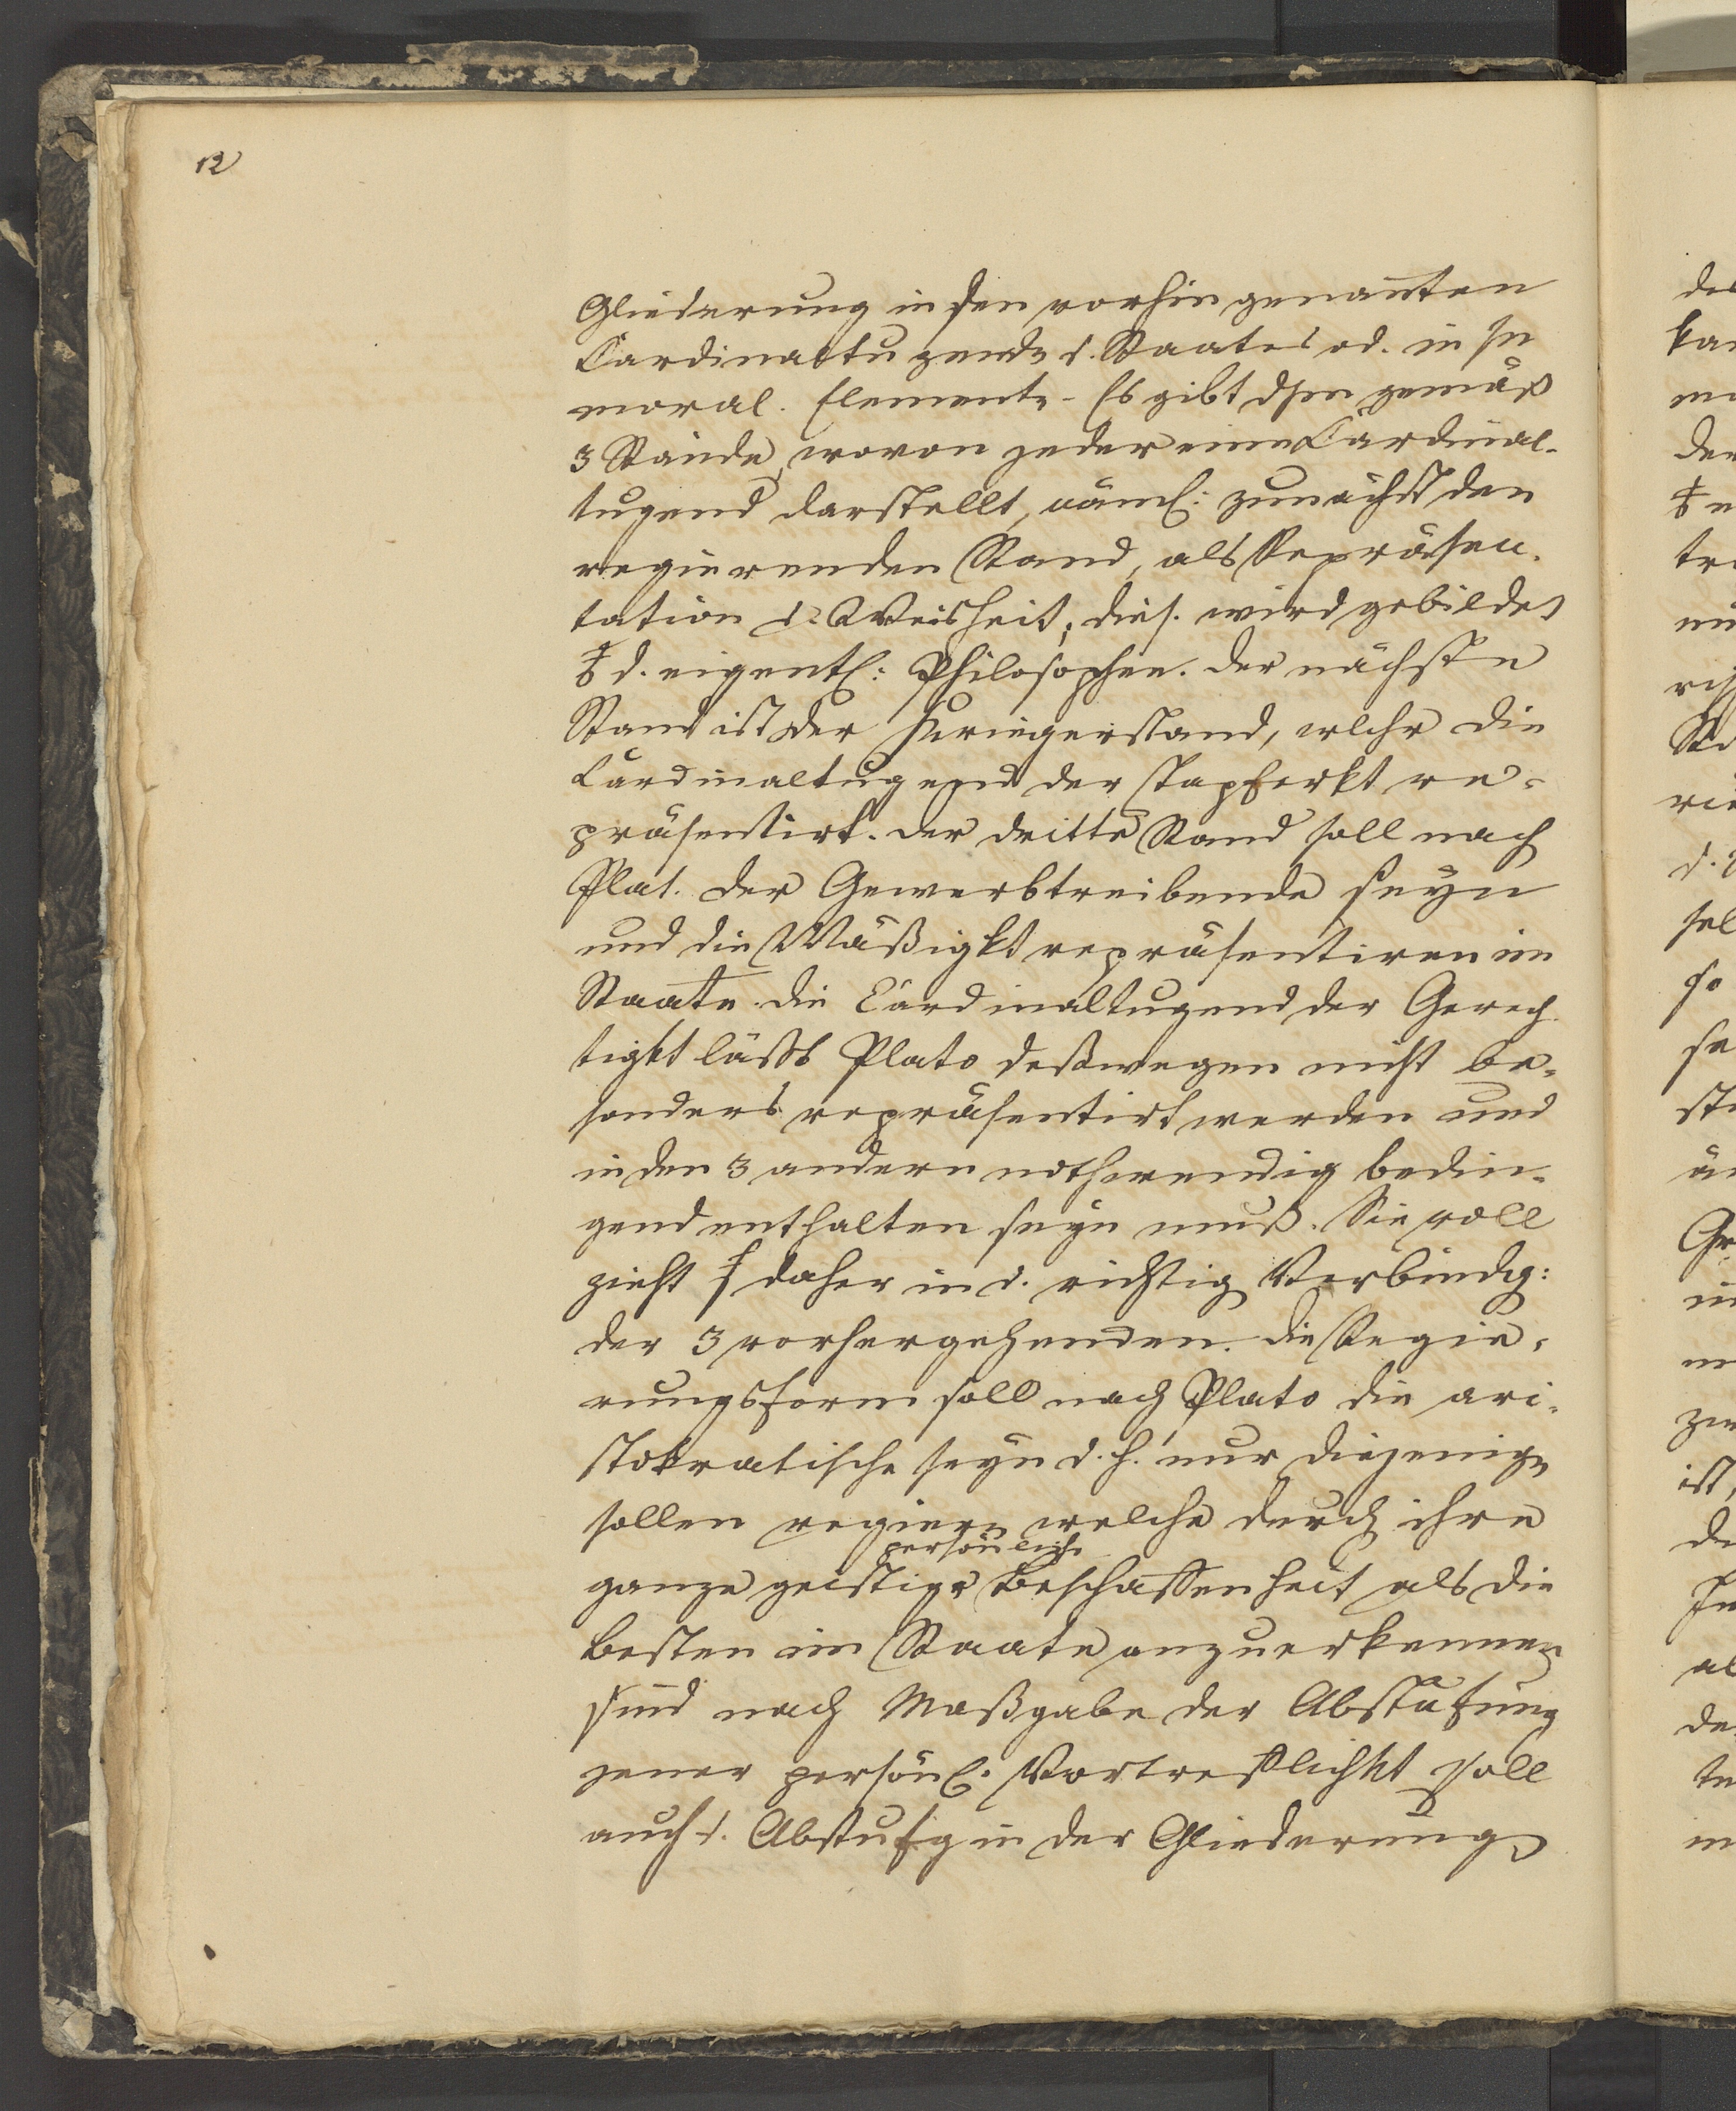 12
Gliederung in den vorhin genannten
Cardinaltugenden d. Staates od. in sn
moral. Elemente. Es gibt dsm gemäß
3 Stände, wovon jeder eine Cardinal-
tugend darstellt, näml: zunächst den
regierenden Stand, als Repräsen-
tation d. Weisheit; dies. wird gebildet
d. eigentl: Philosophen. der nächste
Stand ist der Kriegerstand, wlchr die
Cardinaltugend der Tapferkt re-
präsentirt. der dritte Stand soll nach
Plat. der Gewerbtreibende seyn
und die Mäßigkt repräsentiren im
Staate. die Cardinaltugend der Gerech
tigkt läßt Plato deßwegen nicht be-
sonders repräsentirt werden und
in den 3 andern nothwendig bedin-
gend enthalten seyn muß. Sie voll
zieht s daher in d. richtig Verbindg:
der 3 vorhergehenden. die Regie-
rungsform soll nach Plato die ari-
stokratische seyn d. h. nur diejenign
sollen regiern welche durch ihre
persönliche
ganze geistige Beschaffenheit als die
besten im Staate anzuerkennen
sind nach Maßgabe der Abstufung
jener persönl. Vortrefflichkt soll
auch d. Abstufg in der Gliederung